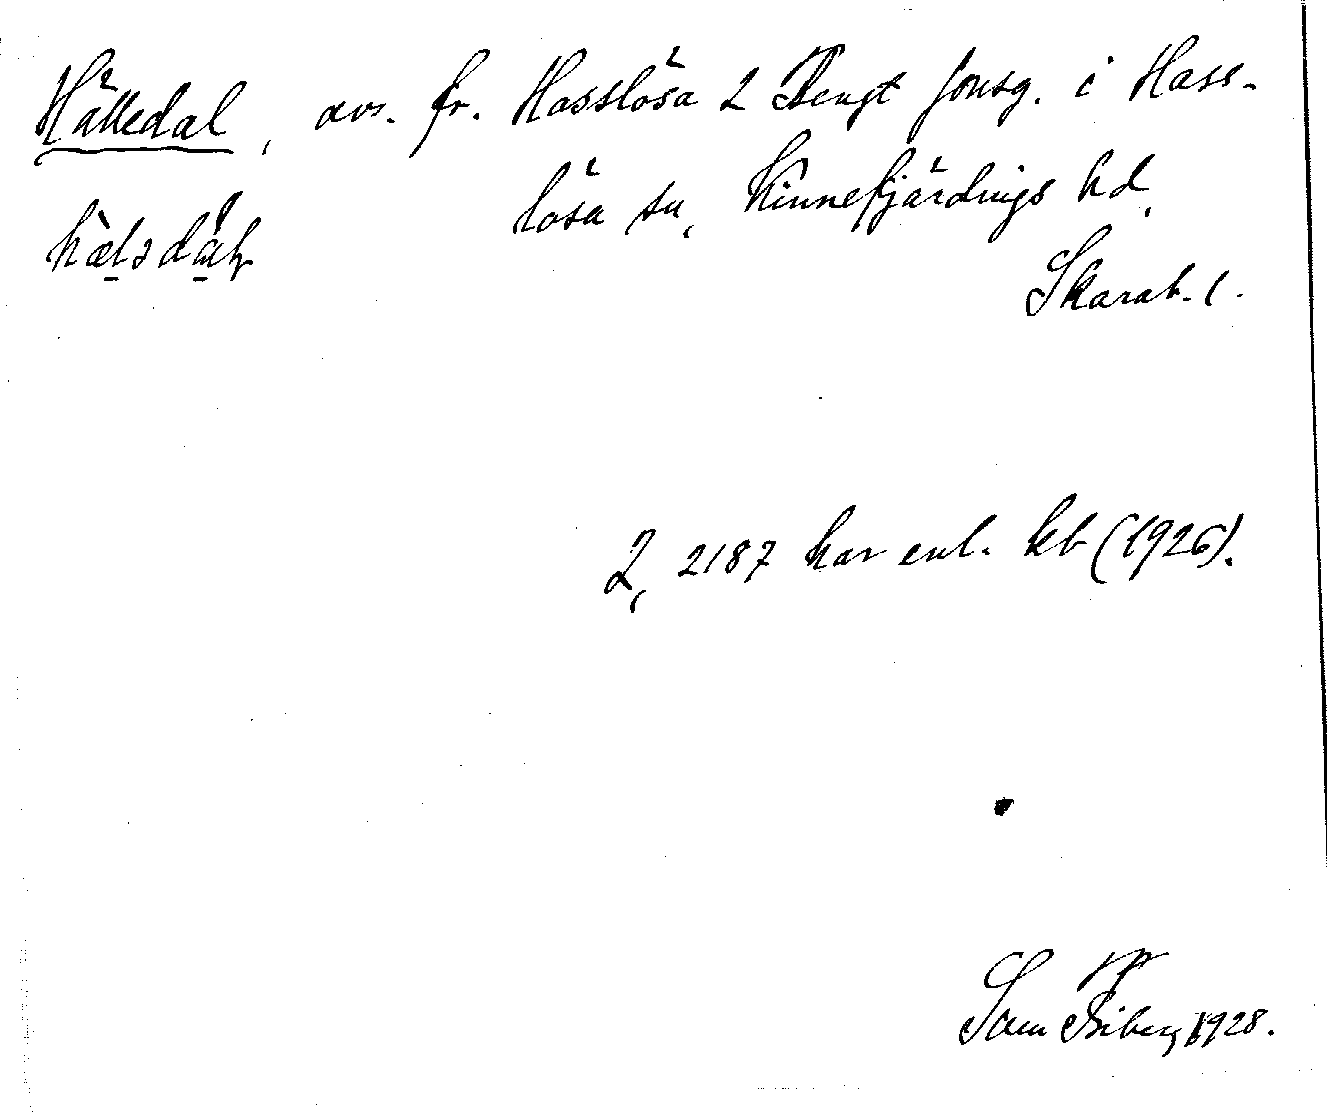 Hälledal, avs. fr. Hasslösa 2 Bengt Jonsg. i Hass-
lösa sn, Kinnefjärdings hd,
Skarab. l.
2,2187 har enl. kb (1926).
1928.